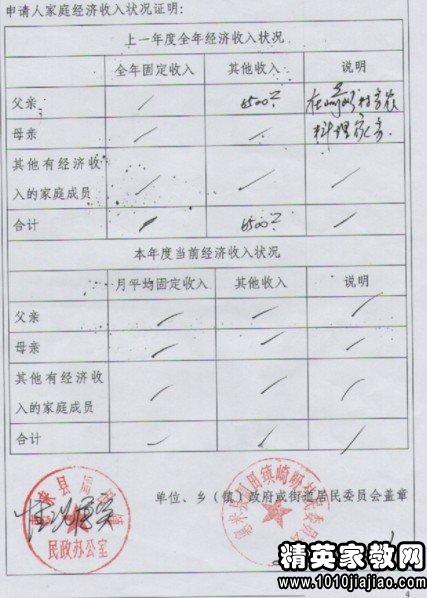 申请人家庭经济收入状况证明:
上一年度全年经济收入状况
全年固定收入 其他收入 说明
父亲 6500元 在
母亲 料理家务.
其他有经济收
入的家庭成员
合计 6500元
本年度当前经济收入状况
月平均固定收入 其他收入 说明
父亲
母亲
其他有经济收
入的家庭成员
合计
单位、乡(镇)政府或街道居民委员会盖章
惠来县
民政办公室
情况属实
精英家教网
www.1010jiajiao.com
4